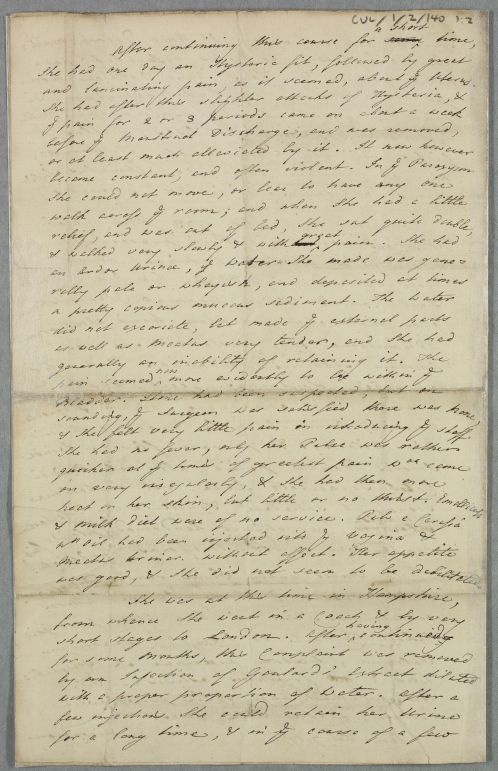 CUL/1/2/140 p.2
After continuing this course for a short time,
She had one day an Hysteric fit, followed by great
and lancinating pain, as it seemed, about ye Uterus.
She had after this slighter attacks of Hysteria, &
ye pain for 2 or 3 periods came on about a week
before ye Menstrual Discharge, and was removed,
or at least much alleviated by it. It now however
became constant, and often violent. In ye Paroxysm
She could not move, or bear to have any one
walk across ye room; and when She had a little
relief, and was out of bed, She sat quite double,
& walked very slowly & with great pain. She had
an ardor Urinæ, ye water She made was gene=
rally pale or wheyish, and deposited at times
a pretty copious mucous sediment. The water
did not excoriate, but made ye external parts
as well as Meatus very tender, and She had
generally an inability of retaining it. The
pain seemed now more evidently to be within ye
Bladder. Stone had been suspected but on
sounding, ye Surgeon was satisfied there was none,
& She felt very little pain on introducing ye staff.
She had no fever, only her Pulse was rather
quicker as ye times of greatest pain wch came
on very irregularly, & She had then more
heat on her skin, but little or no thirst. Emollients
& milk diet were of no service. Pulv e Cerussâ
wth oil had been injected into ye vagina &
Meatus Urinar. without effect. Her appetite
was good, & She did not seem to be debilitated.
She was at this time in Hampshire,
from whence She went in a Coach & by very
short stages to London. After having continued
for some Months, this Complaint was removed
by an Injection of Goulard's Extract diluted
with a proper proportion of water. After a
few injections She could retain her Urine
for a long time, & in ye course of a few